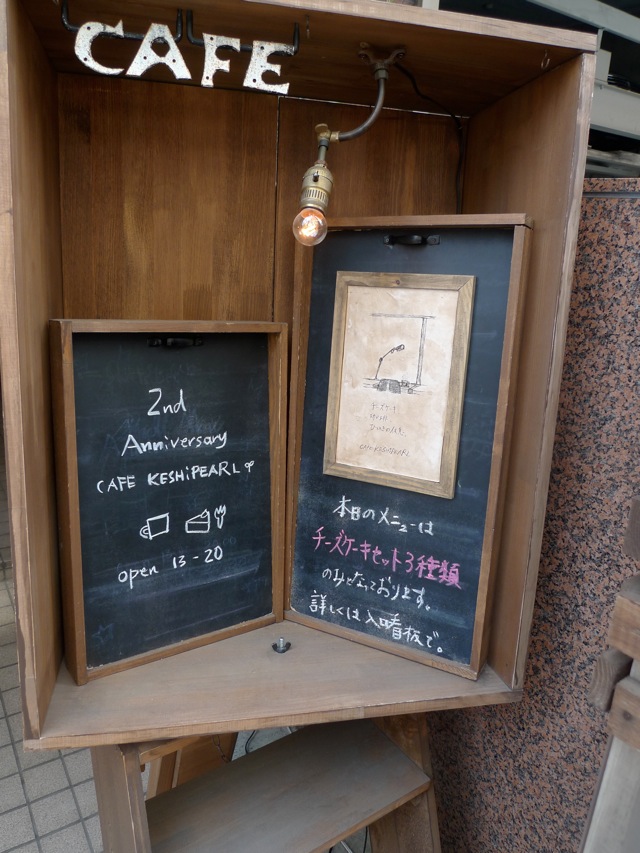 CAFE
2nd
Anniversary
CAFE KESHiPEARL
open 13-20
チーズケーキ
CAFE KESHiPEARL
本日のメニューは
チーズケーキセット3種類
のみとなっております。
詳しくは入口看板で。